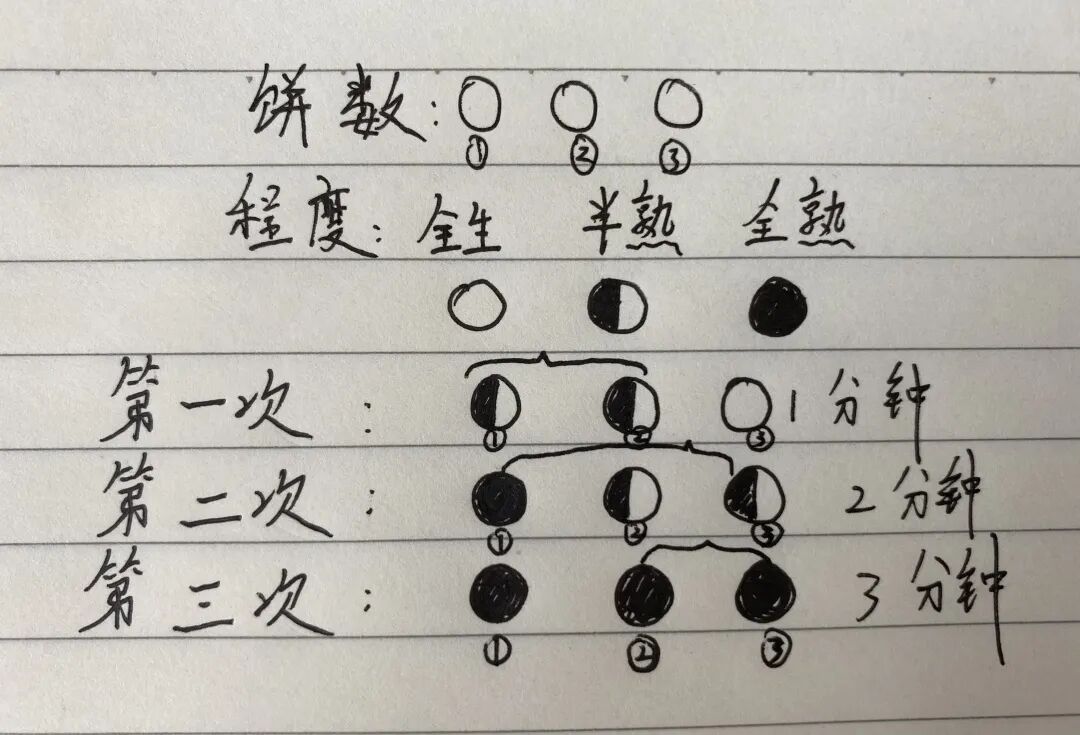 饼数:
① ② ③
程度: 全生 半熟 全熟
第一次: 1分钟
① ② ③
第二次: 2分钟
① ② ③
第三次: 3分钟
① ② ③